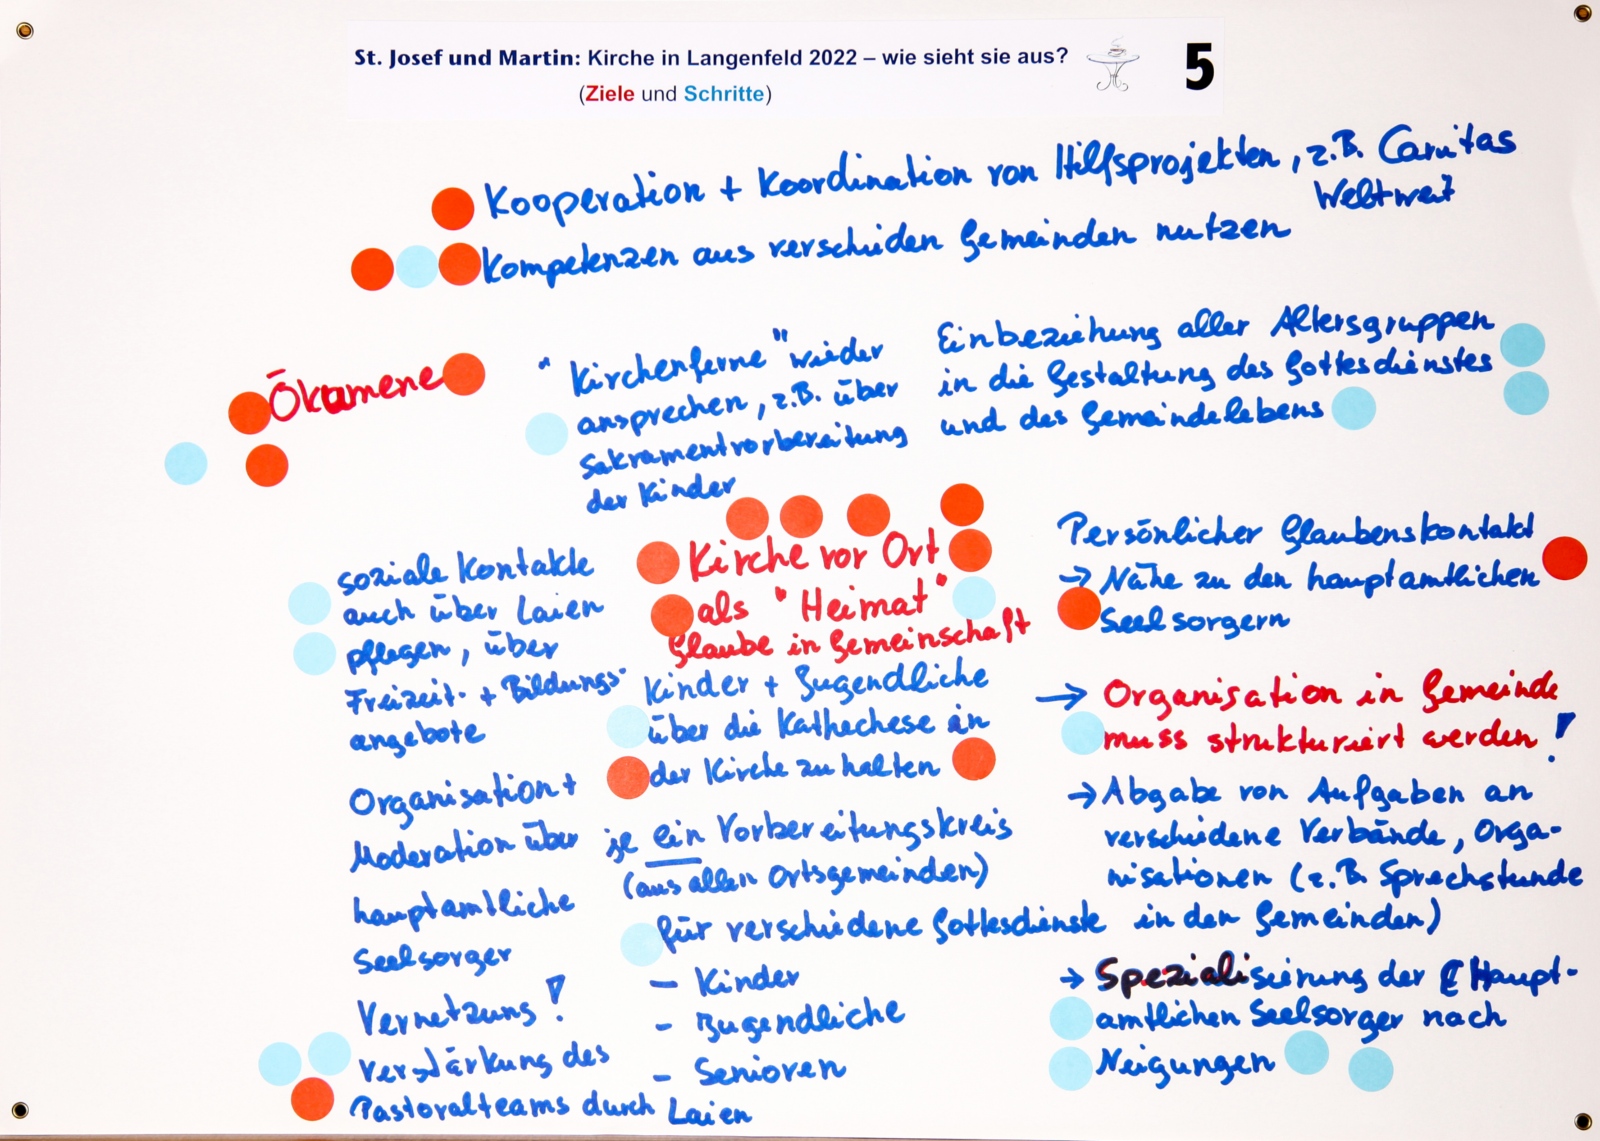 St. Josef und Martin: Kirche in Langenfeld 2022 – wie sieht sie aus?
(Ziele und Schritte)
5
Kooperation + Koordination von Hilfsprojekten, z.B. Caritas
Weltweit
Kompetenzen aus verschiden Gemeinden nutzen
Ökumene
"Kirchenferne" wieder
ansprechen, z.B. über
Sakramentvorbereitung
der Kinder
Einbeziehung aller Altersgruppen
in die Gestaltung des Gottesdienstes
und des Gemeindelebens
soziale Kontakte
auch über Laien
pflegen, über
Freizeit- + Bildungs-
angebote
Kirche vor Ort
als "Heimat"
Glaube in Gemeinschaft
Persönlicher Glaubenskontakt
→ Nähe zu den hauptamtlichen
Seelsorgern
Kinder + Jugendliche
über die Kathechese in
der Kirche zu halten
→ Organisation in Gemeinde
muss strukturiert werden!
Organisation +
Moderation über
hauptamtliche
Seelsorger
je ein Vorbereitungskreis
(aus allen Ortsgemeinden)
für verschiedene Gottesdienste
– Kinder
– Jugendliche
– Senioren
→ Abgabe von Aufgaben an
verschiedene Verbände, Orga-
nisationen (z.B. Sprechstunde
in den Gemeinden)
→ Spezialisierung der Haupt-
amtlichen Seelsorger nach
Neigungen
Vernetzung!
Verstärkung des
Pastoralteams durch Laien